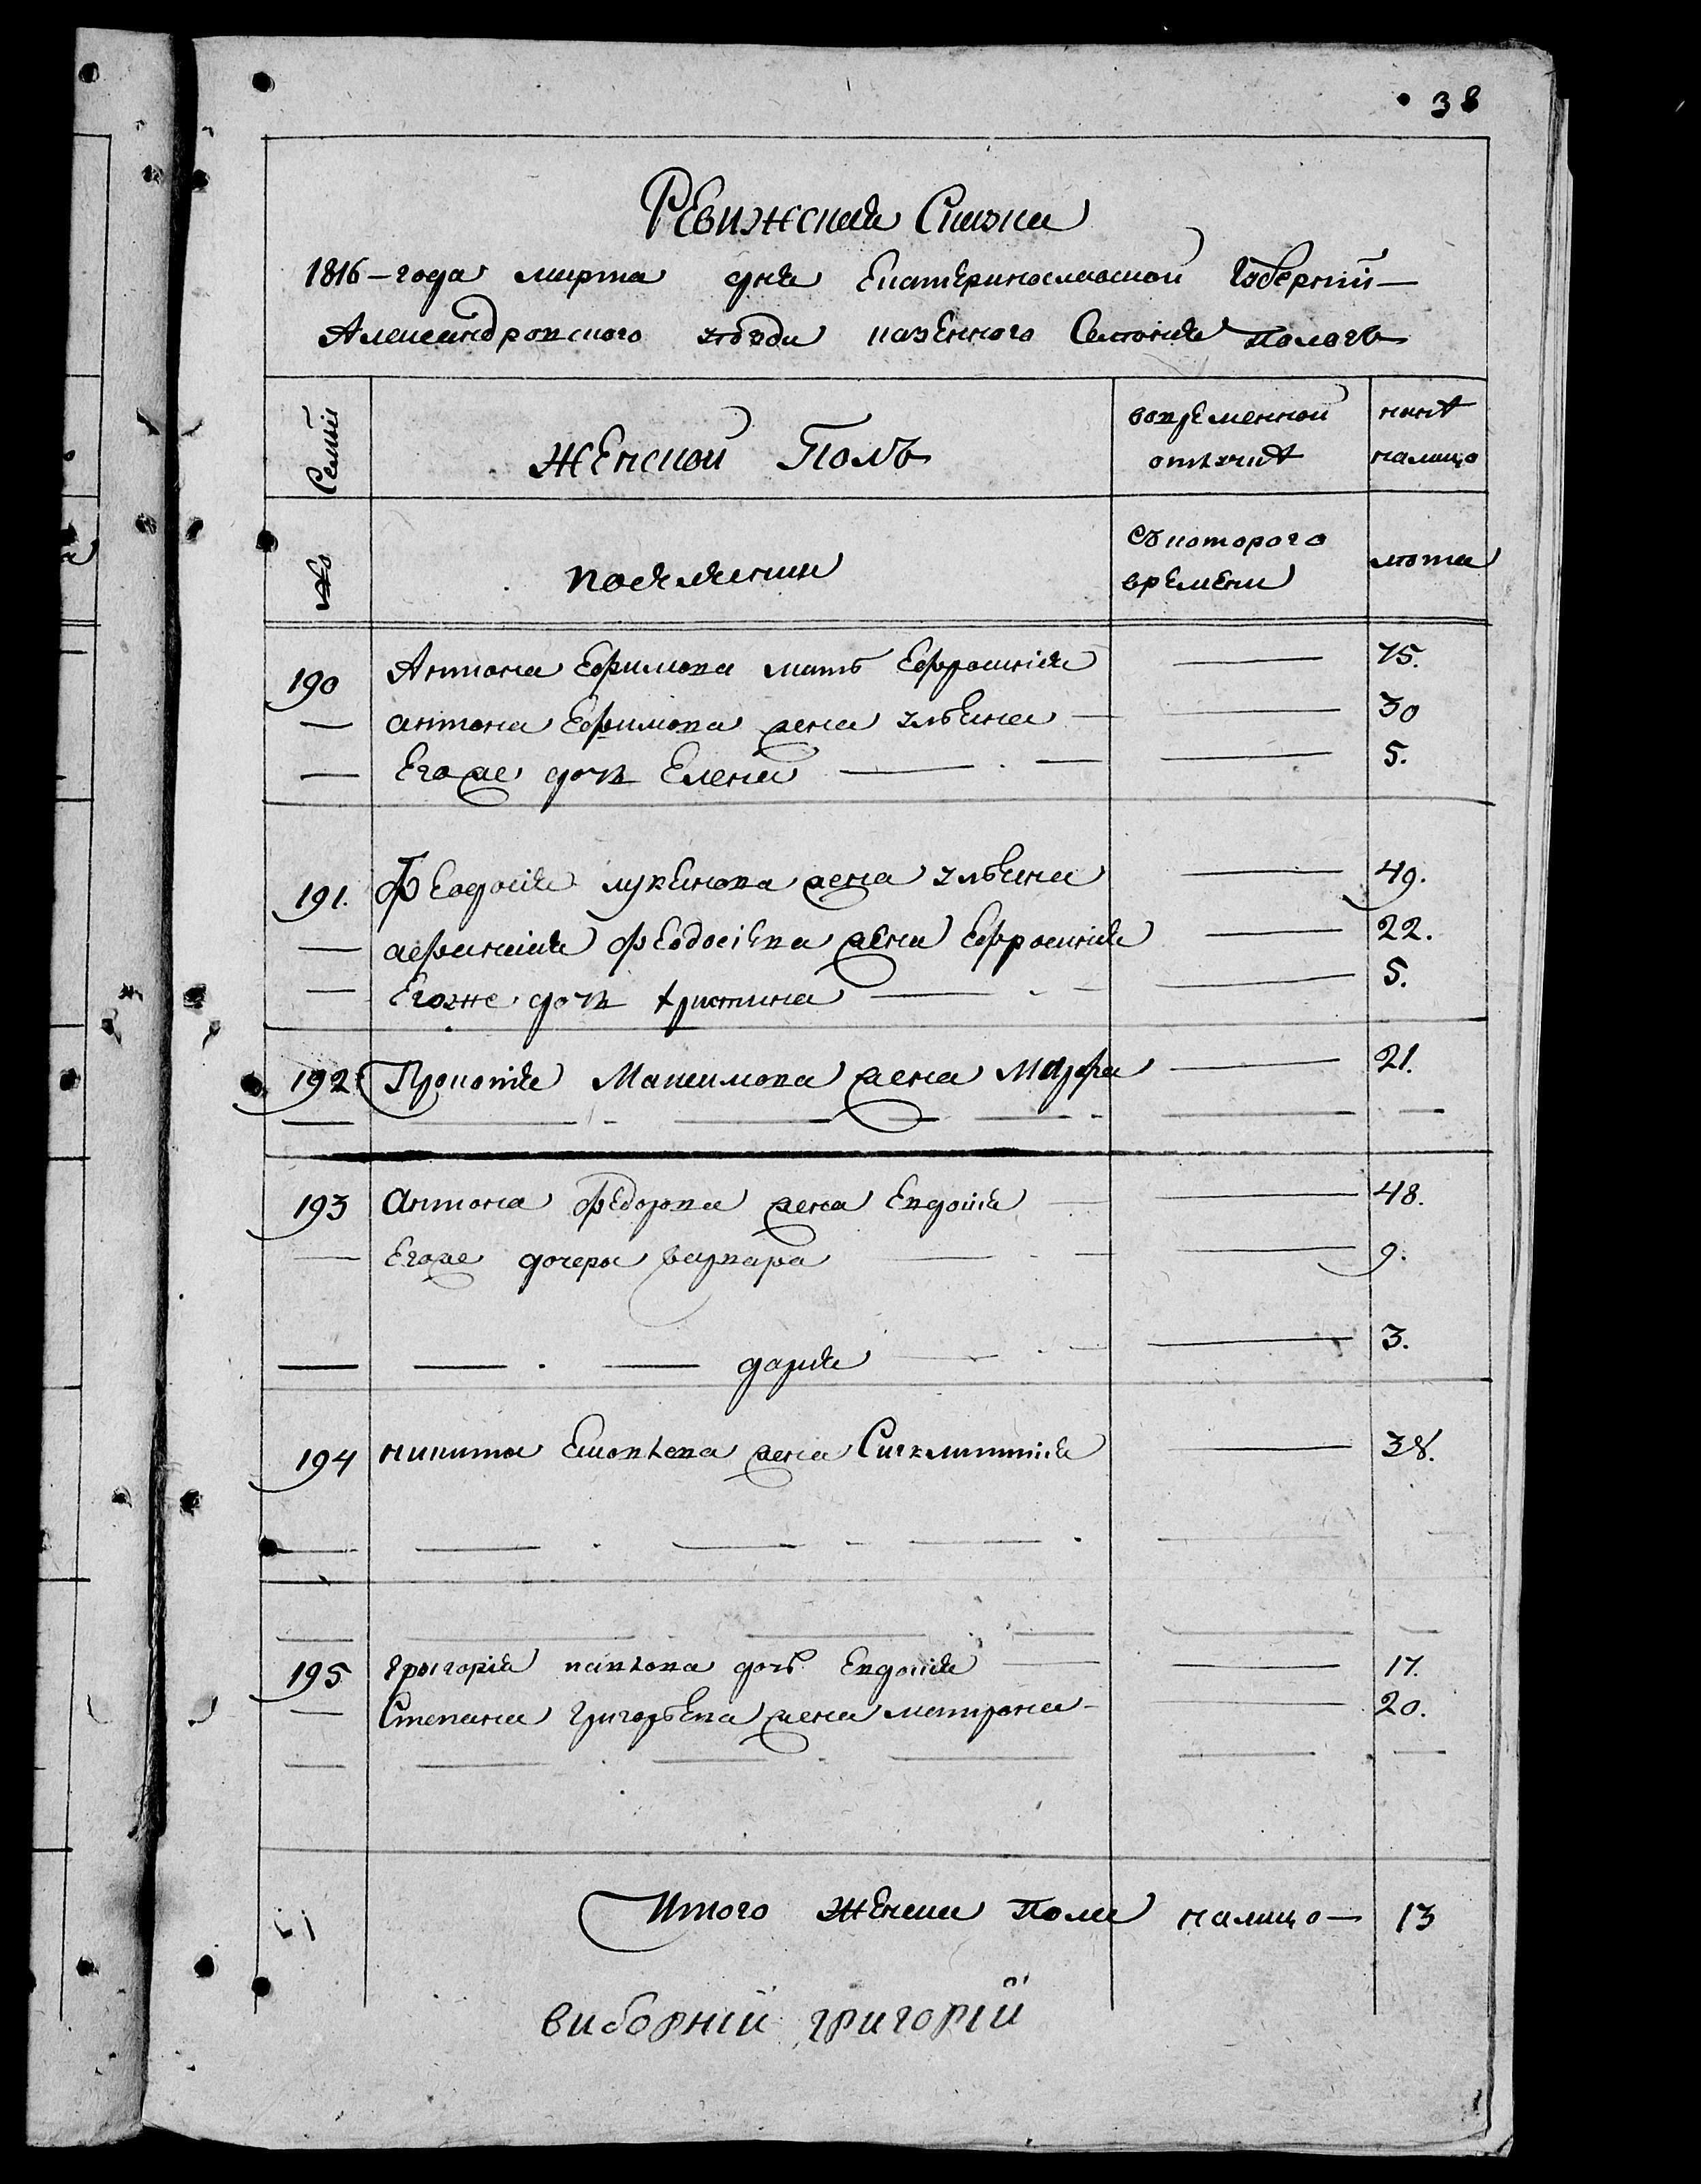 38
Ревижская Сказка
1816-года марта дня Екатеринославской Губернїи
Александровского уѣзда казенного Селения Пологъ
Семьи
Женской Полъ
вовременной отлучкѣ
нынѣ налицо
№
поселянки
Съкоторого времени
лѣта
190 Антона Ефимова мать Ефросинія — 75.
— антона Ефимова жена Ульяна — 30
— Егоже дочь Елена — 5.
191. Феодосія лукянова жена ульяна — 49.
— афанасія феодосіева жена Ефросинія — 22.
— Егоже дочь христина — 5.
192 Прокопія Максимова жена Марфа — 21.
193 антона федорова жена Евдокія — 48.
— Егоже дочери варвара — 9.
— дарія — 3.
194 никиты жена Сигклитикія — 38.
195 григорія павлова дочь Евдокія — 17.
— Степана григорьева жена матрона — 20.
Итого женска Пола налицо — 13
виборній григорій